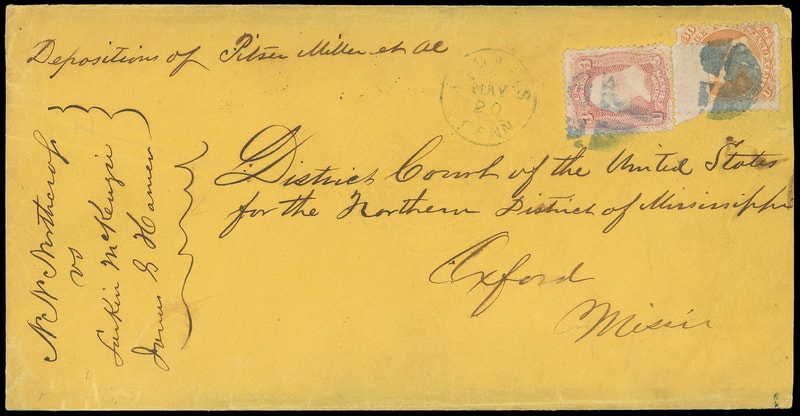 Depositions of Pitser Miller et al
MAY
20
TENN
3
30
District Court of the United States
for the Northern District of Mississippi
Oxford
Missi
N N Northcrop
vs
Larkin McKenzie